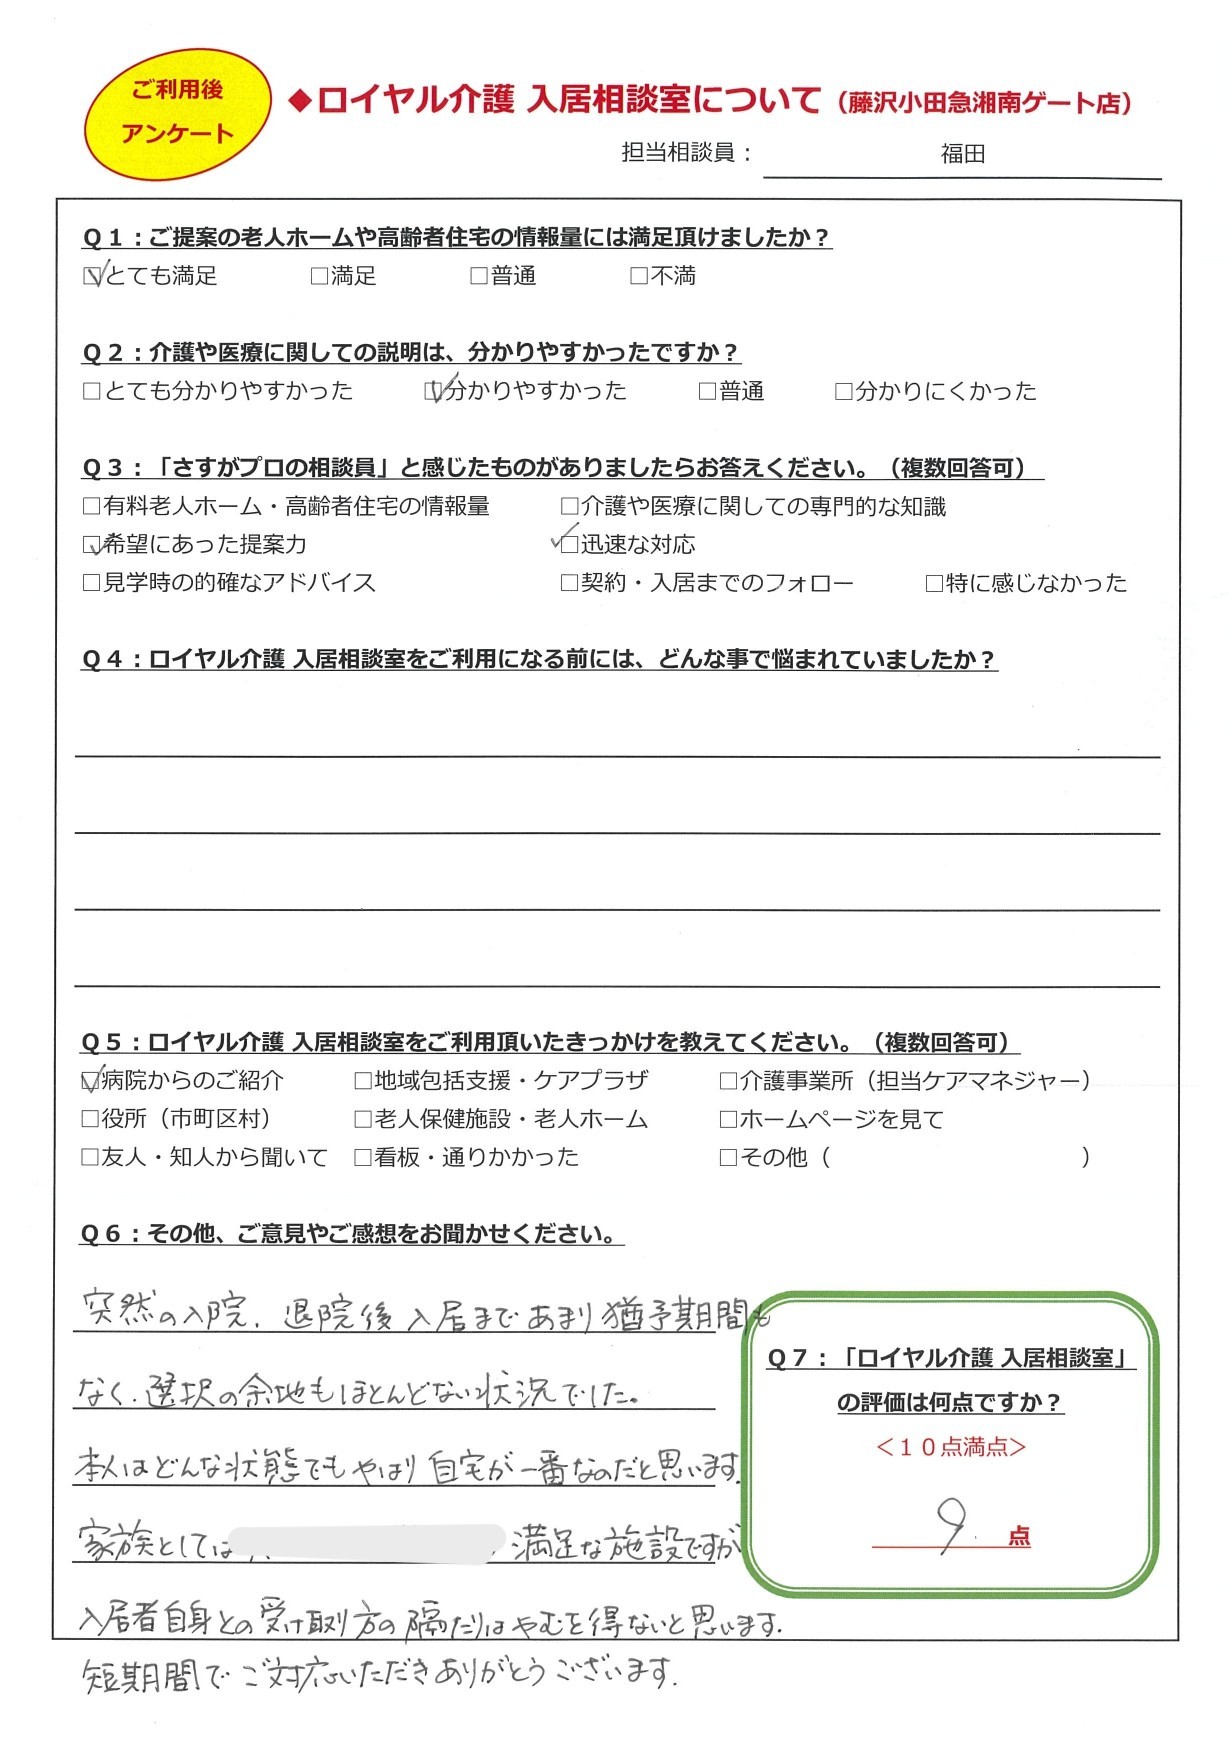 ご利用後
アンケート
◆ロイヤル介護 入居相談室について（藤沢小田急湘南ゲート店）
担当相談員： 福田
Ｑ１：ご提案の老人ホームや高齢者住宅の情報量には満足頂けましたか？
☑とても満足 □満足 □普通 □不満
Ｑ２：介護や医療に関しての説明は、分かりやすかったですか？
□とても分かりやすかった ☑分かりやすかった □普通 □分かりにくかった
Ｑ３：「さすがプロの相談員」と感じたものがありましたらお答えください。（複数回答可）
□有料老人ホーム・高齢者住宅の情報量 □介護や医療に関しての専門的な知識
☑希望にあった提案力 ☑迅速な対応
□見学時の的確なアドバイス □契約・入居までのフォロー □特に感じなかった
Ｑ４：ロイヤル介護 入居相談室をご利用になる前には、どんな事で悩まれていましたか？
Ｑ５：ロイヤル介護 入居相談室をご利用頂いたきっかけを教えてください。（複数回答可）
☑病院からのご紹介 □地域包括支援・ケアプラザ □介護事業所（担当ケアマネジャー）
□役所（市町区村） □老人保健施設・老人ホーム □ホームページを見て
□友人・知人から聞いて □看板・通りかかった □その他（ ）
Ｑ６：その他、ご意見やご感想をお聞かせください。
突然の入院、退院後入居まであまり猶予期間も
なく、選択の余地もほとんどない状況でした。
本人はどんな状態でもやはり自宅が一番なのだと思います。
家族としては 、満足な施設ですが
入居者自身との受け取り方の隔たりはやむを得ないと思います。
短期間でご対応いただきありがとうございます。
Ｑ７：「ロイヤル介護 入居相談室」
の評価は何点ですか？
＜１０点満点＞
9 点